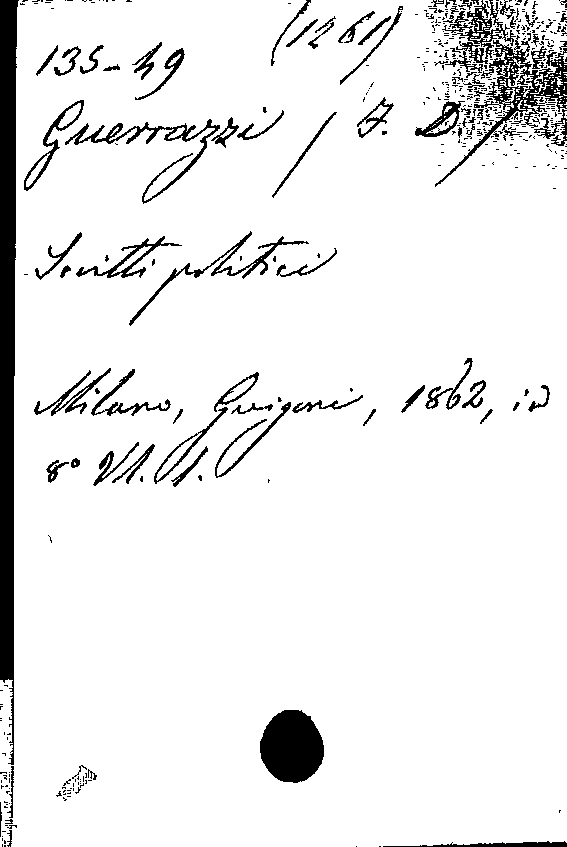 (1261)
135-49
Guerrazzi / F. D. /
Scritti politici
Milano, Guigoni, 1862, in
8° Vl. 1.